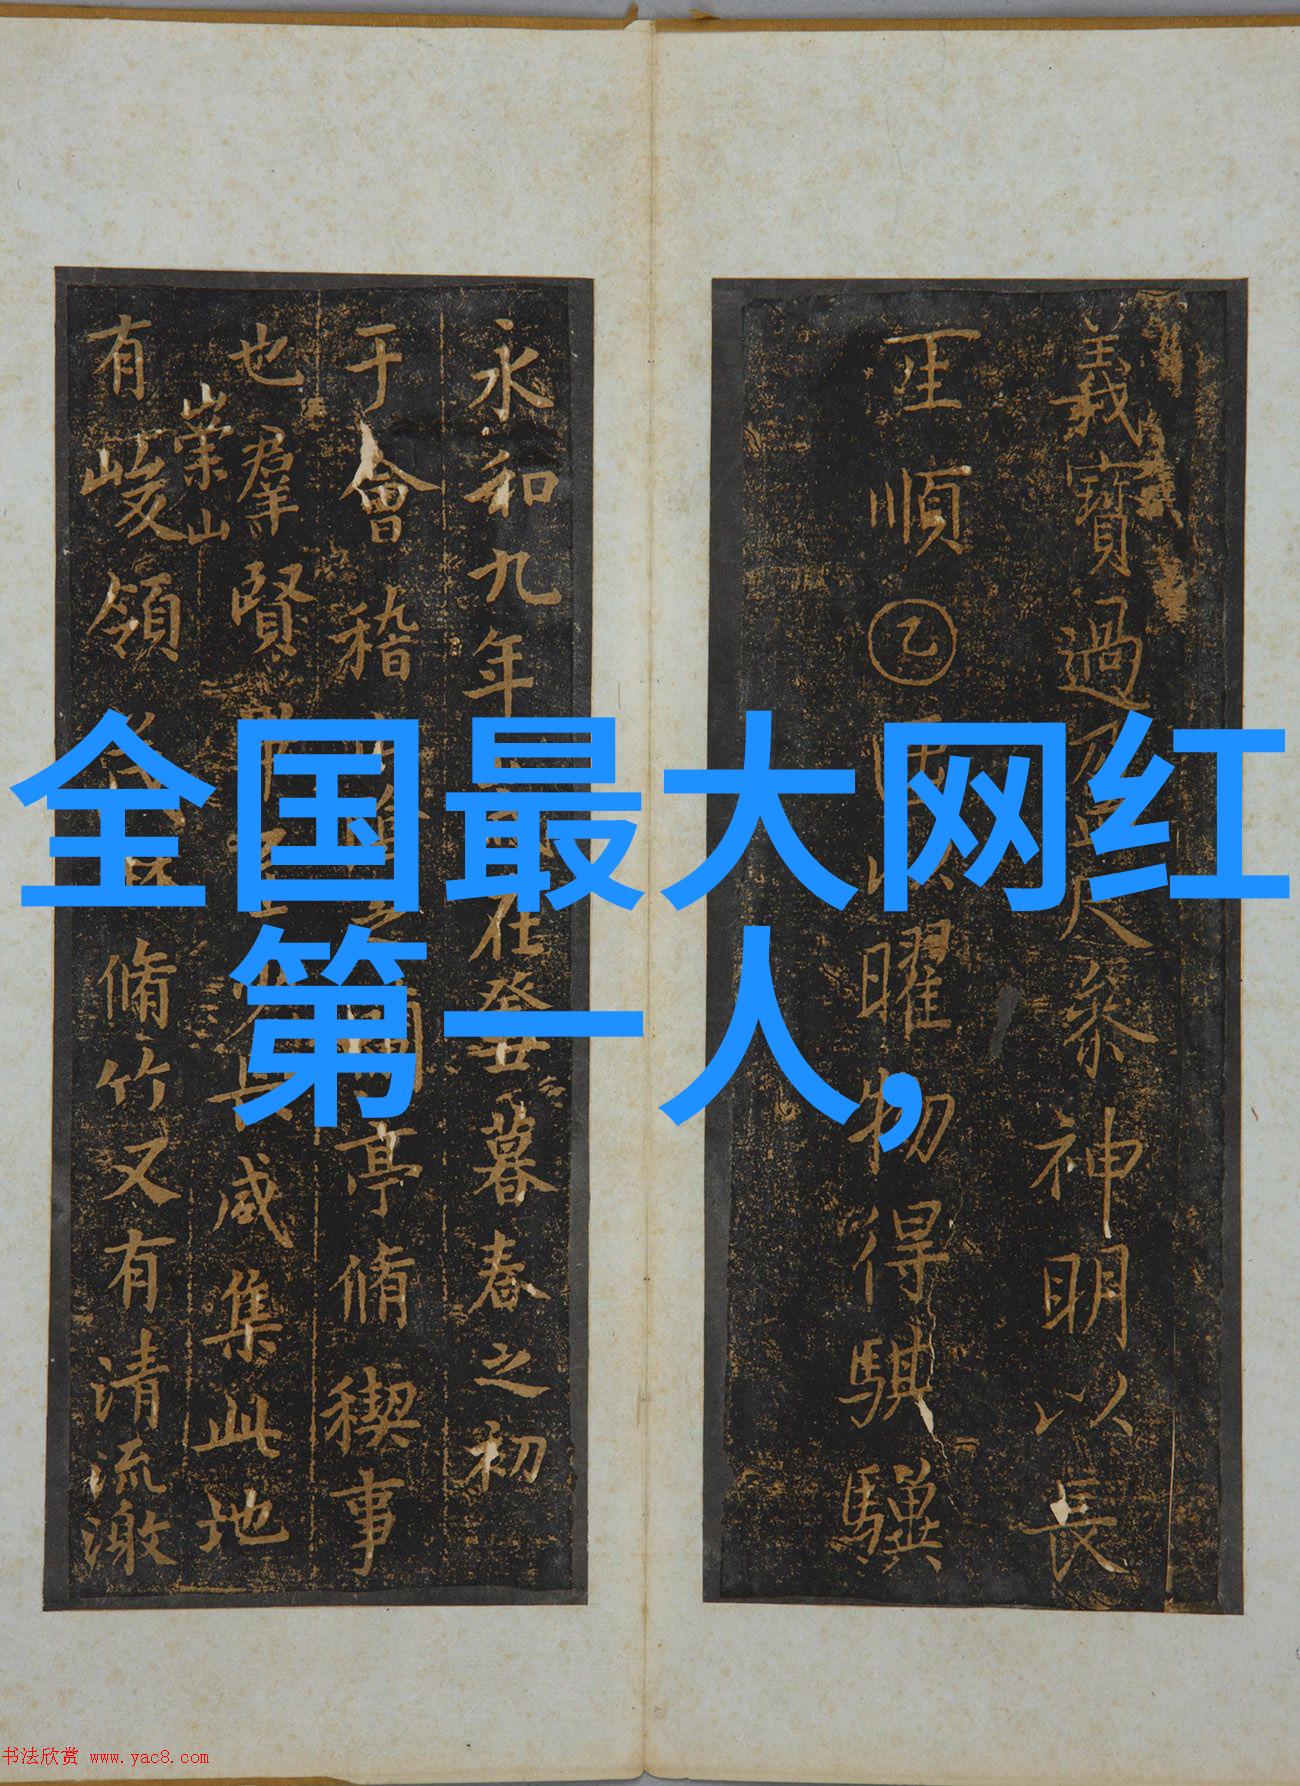 全国最大网红
第一人,
義寶過乃盈尺參神明以長
順乙以曜物得騏驥
永和九年在癸丑暮春之初
于會稽山陰之蘭亭脩禊事
也羣賢畢至少長咸集此地
崇山
有峻領茂林脩竹又有清流激
书法欣赏 www.yac8.com